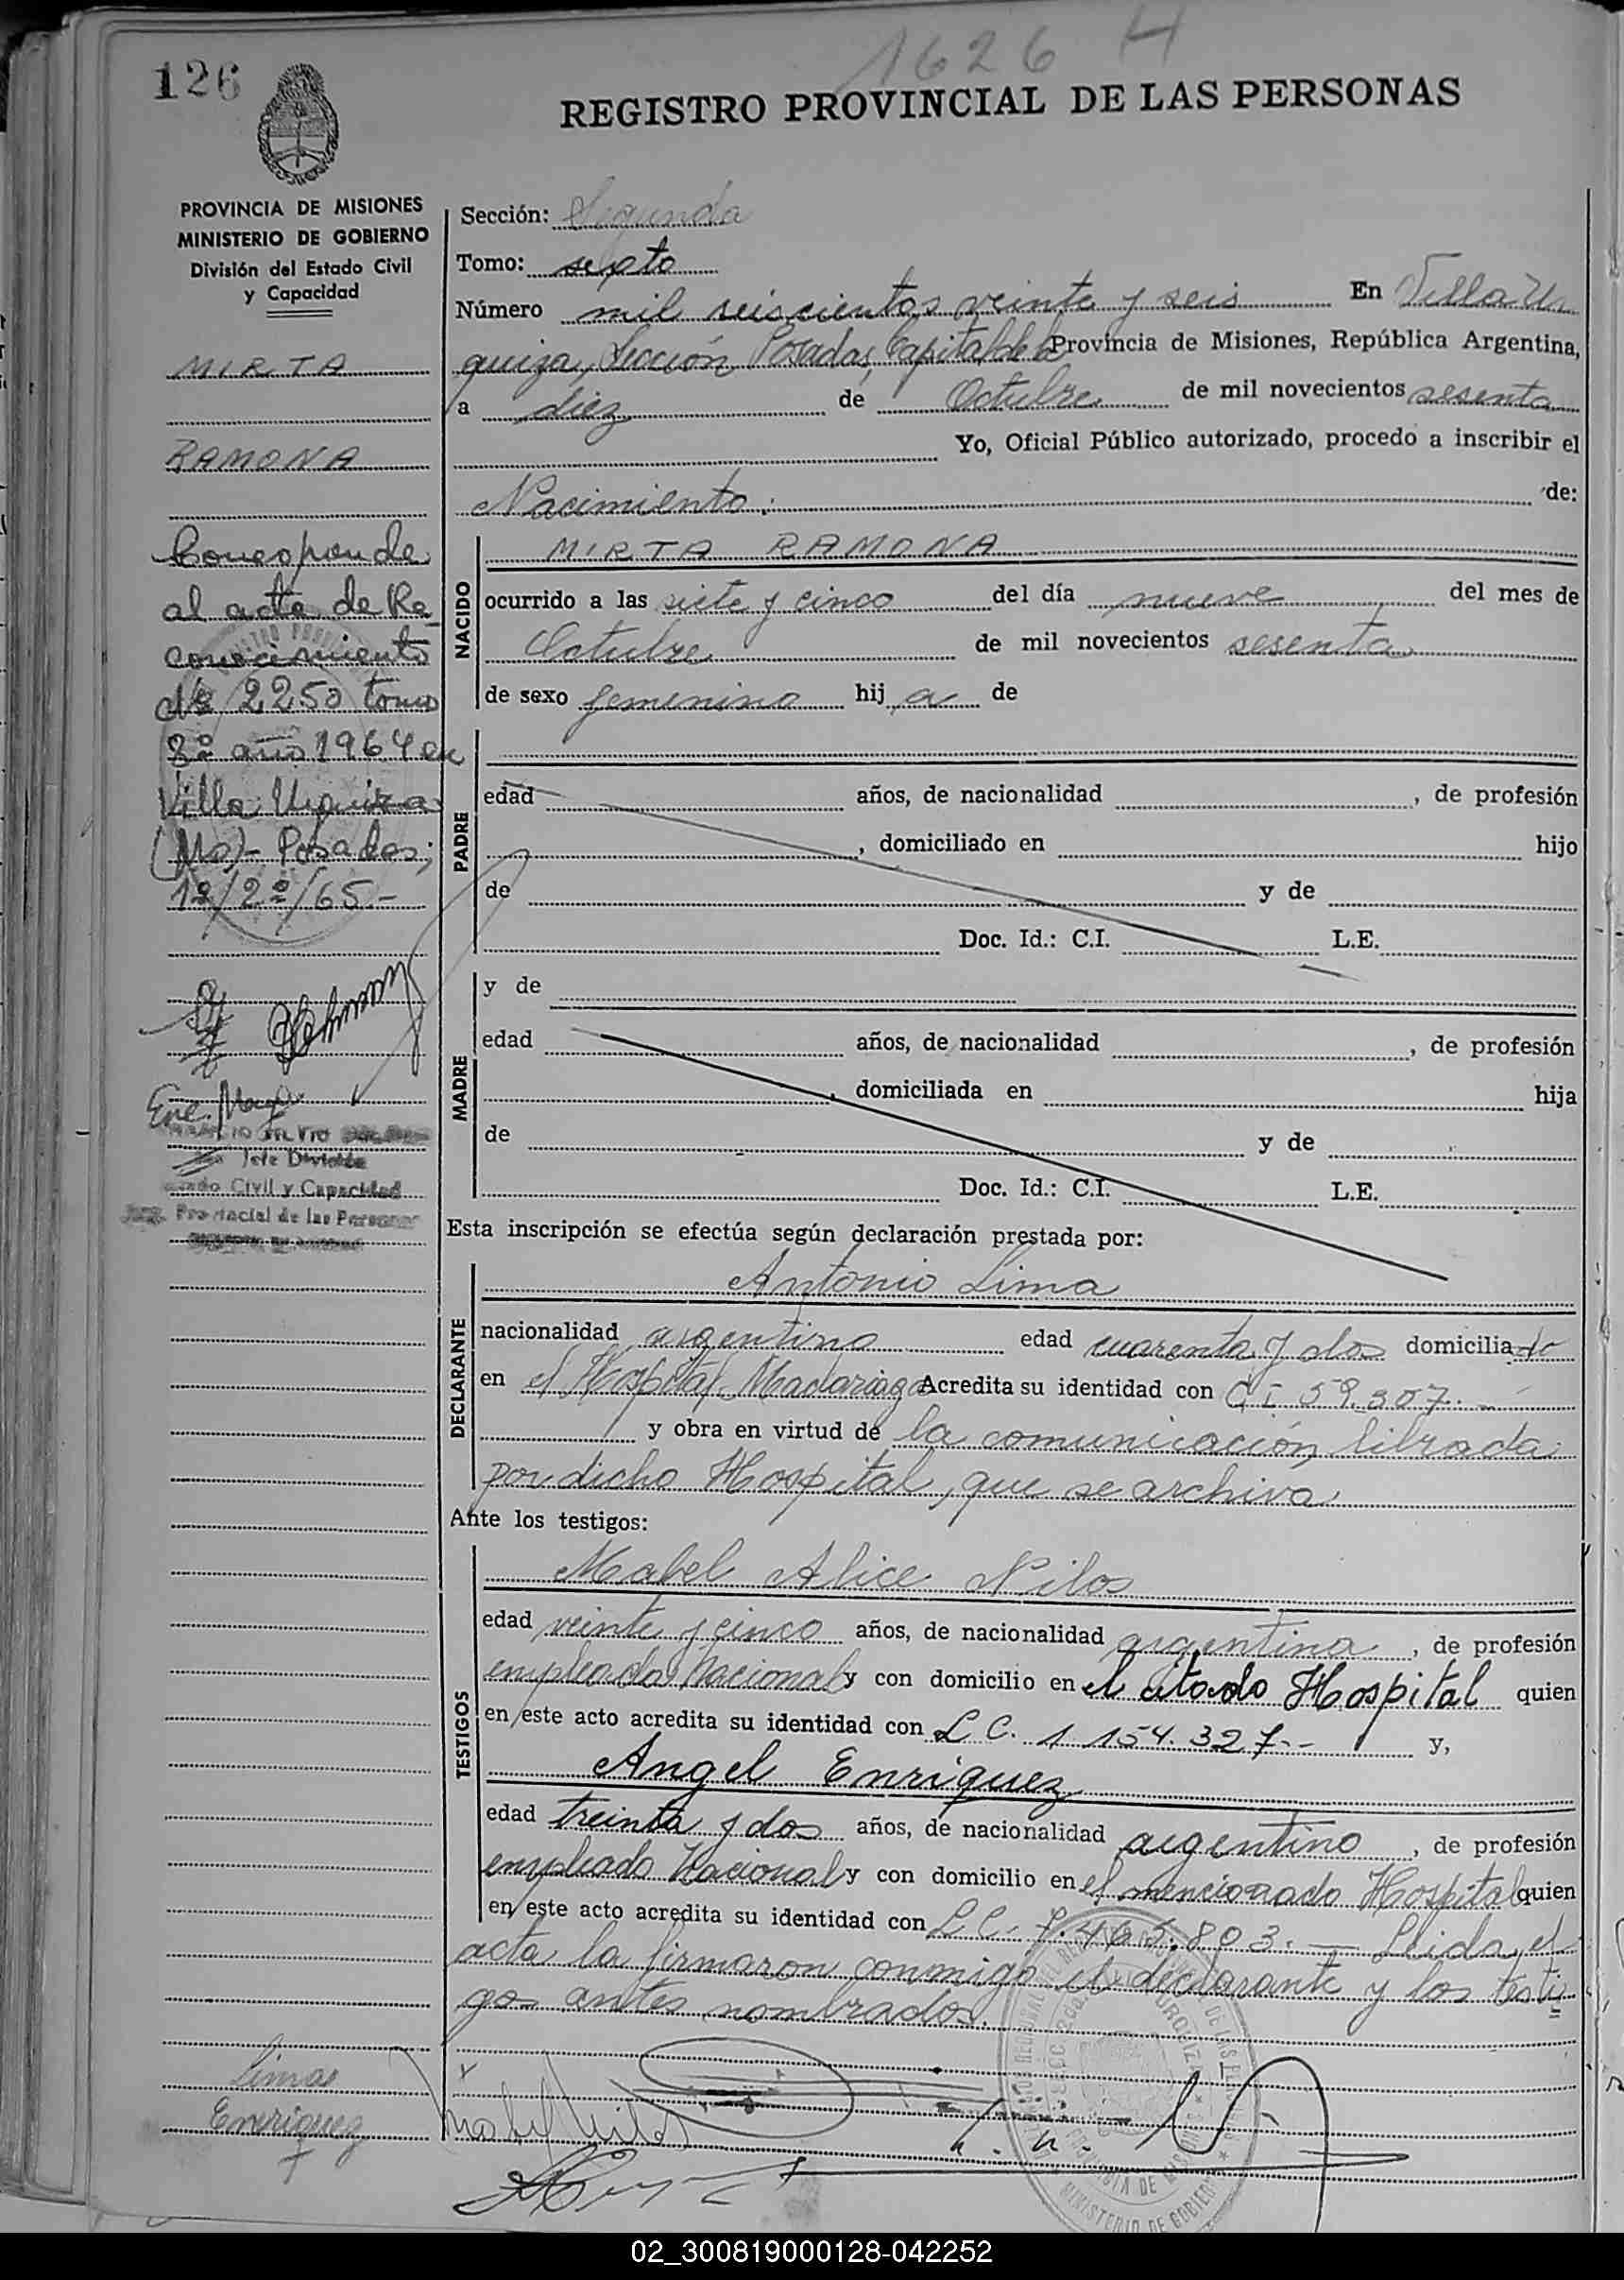 1626 H
126
REGISTRO PROVINCIAL DE LAS PERSONAS
PROVINCIA DE MISIONES
MINISTERIO DE GOBIERNO
División del Estado Civil
y Capacidad
MIRTA
RAMONA
Corresponde
al acta de Re_
conocimiento
Nº 2250 tomo
8º año 1964 en
Villa Urquiza
(Ms)- Posadas,
1º/2º/65.-
Enc. Mayo
Jefe División
Civil y Capacidad
Provincial de las Personas
Sección: Segunda
Tomo: septo
Número mil seiscientos veinte y seis En Villa Ur
quiza, Sección Posadas, Capital de la Provincia de Misiones, República Argentina,
a diez de Octubre de mil novecientos sesenta
Yo, Oficial Público autorizado, procedo a inscribir el
Nacimiento: de:
NACIDO
MIRTA RAMONA
ocurrido a las siete y cinco del día nueve del mes de
Octubre de mil novecientos sesenta
de sexo femenino hija de
PADRE
edad años, de nacionalidad , de profesión
, domiciliado en hijo
de y de
Doc. Id.: C.I. L.E.
MADRE
y de
edad años, de nacionalidad , de profesión
, domiciliada en hija
de y de
Doc. Id.: C.I. L.E.
Esta inscripción se efectúa según declaración prestada por:
DECLARANTE
Antonio Lima
nacionalidad argentino edad cuarenta y dos domiciliado
en el Hospital Madariaga Acredita su identidad con C I 59.307.-
y obra en virtud de la comunicación librada
por dicho Hospital, que se archiva
Ante los testigos:
TESTIGOS
Mabel Alice Nilos
edad veinte y cinco años, de nacionalidad argentina, de profesión
empleada Nacional y con domicilio en el citado Hospital quien
en este acto acredita su identidad con L C. 1 154.327-- y,
Angel Enriquez
edad treinta y dos años, de nacionalidad argentino, de profesión
empleado Nacional y con domicilio en el mencionado Hospital quien
en este acto acredita su identidad con L C. 7.465.803.- Leida el
acta la firmaron conmigo el declarante y los testi
gos antes nombrados.
Limas
Enriquez
02_300819000128-042252